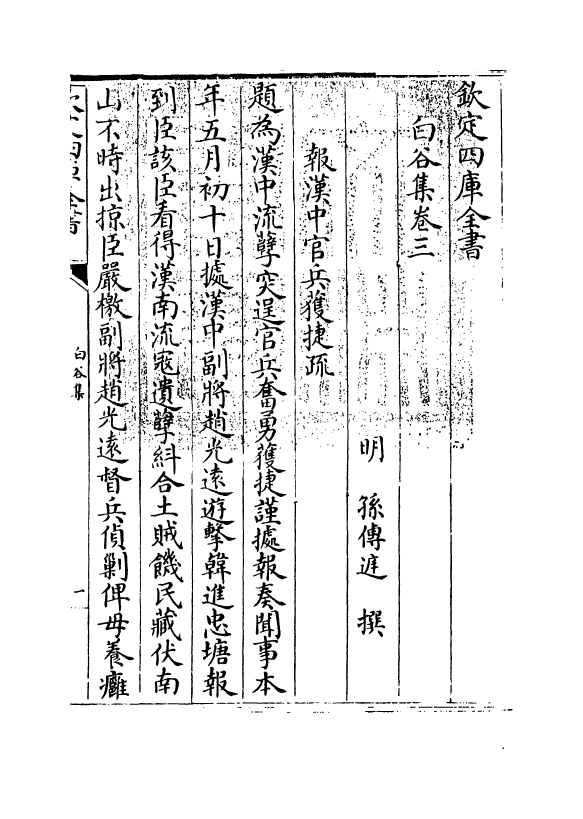 欽定四庫全書
白谷集卷三
明 孫傳庭 撰
報漢中官兵獲捷疏
題為漢中流孽突逞官兵奮勇獲捷謹據報奏聞事本
年五月初十日據漢中副將趙光遠遊擊韓進忠塘報
到臣該臣看得漢南流寇遺孽糾合土賊饑民藏伏南
山不時出掠臣嚴檄副將趙光遠督兵偵剿俾毋養癰
欽定四庫全書
白谷集
一